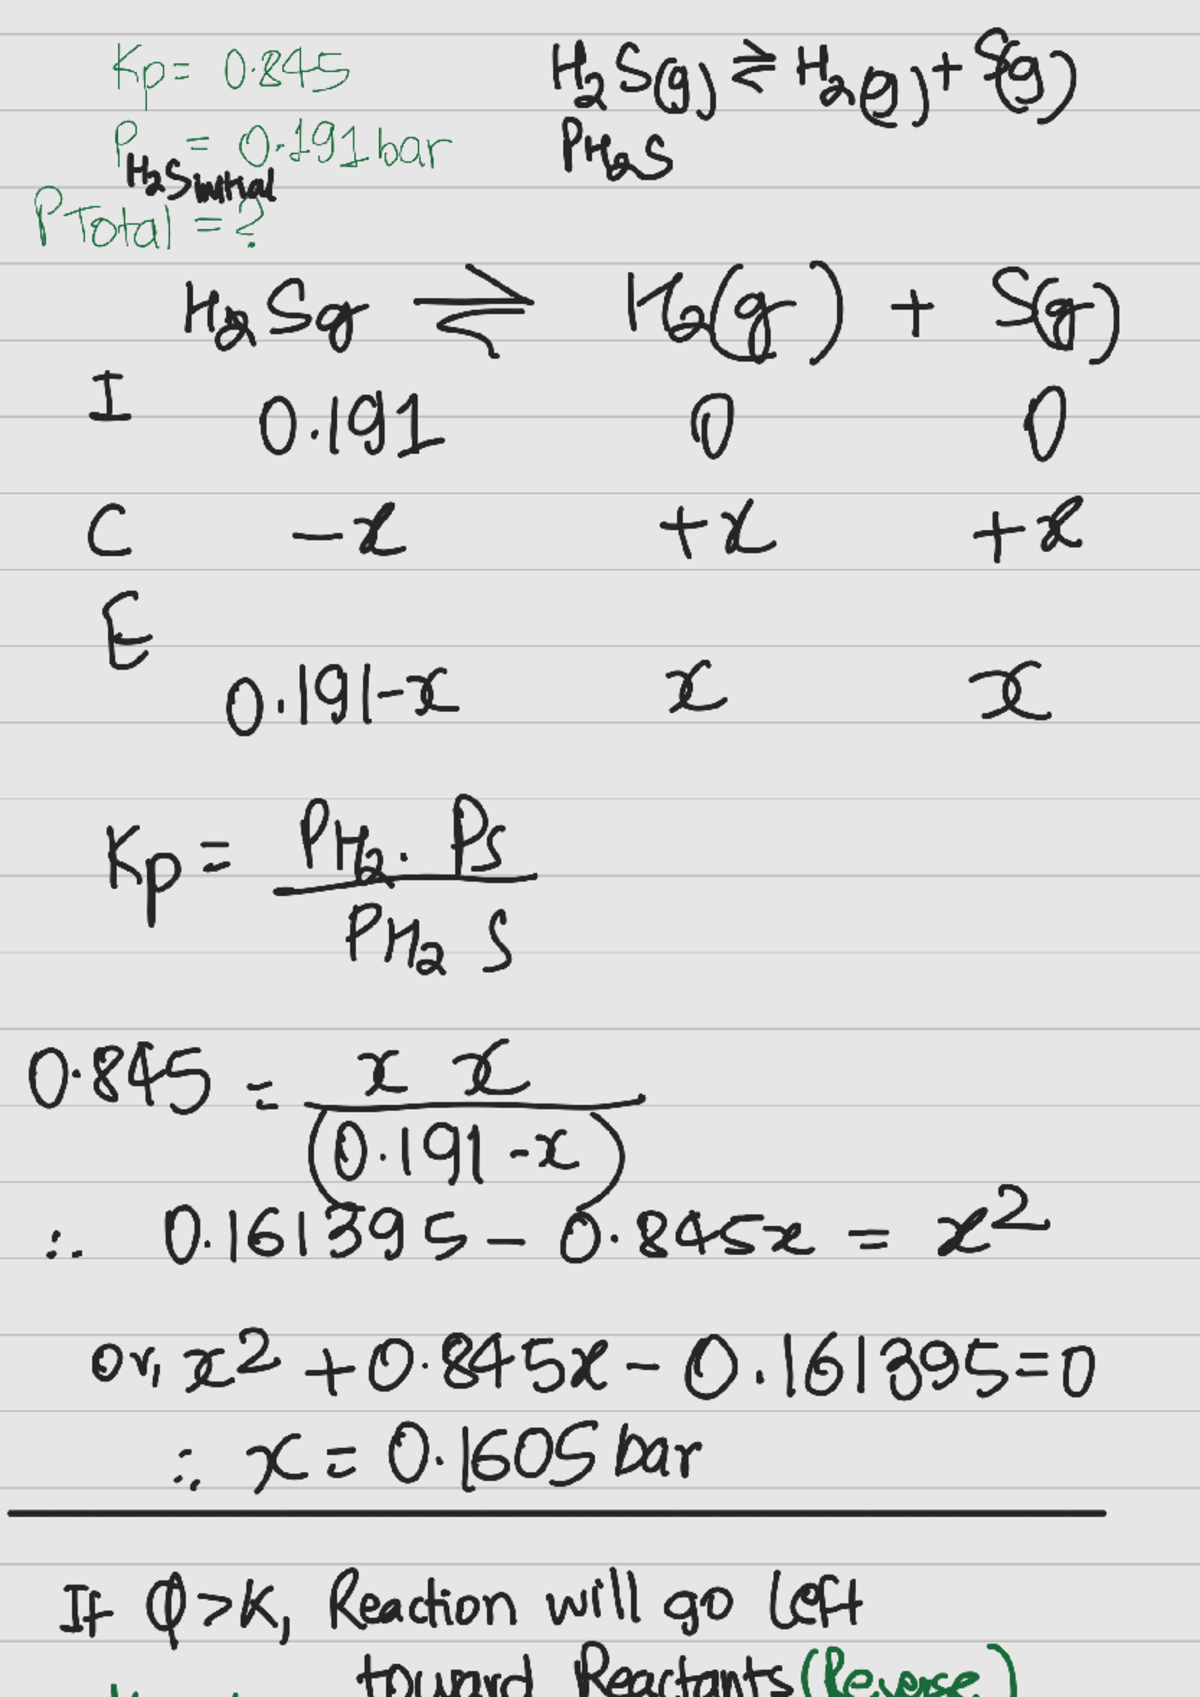 Kp = 0.845
H₂S(g) ⇌ H₂(g) + S(g)
P H₂S initial = 0.191 bar
PH₂S
PTotal = ?
H₂Sg ⇌ H₂(g) + S(g)
I 0.191 0 0
C -x +x +x
E
0.191-x x x
Kp = PH₂ . Ps
PH₂ S
0.845 = x x
(0.191 -x)
∴ 0.161395 - 0.845x = x²
or, x² + 0.845x - 0.161395 = 0
∴ x = 0.1605 bar
If Q > K, Reaction will go left
toward Reactants (Reverse)